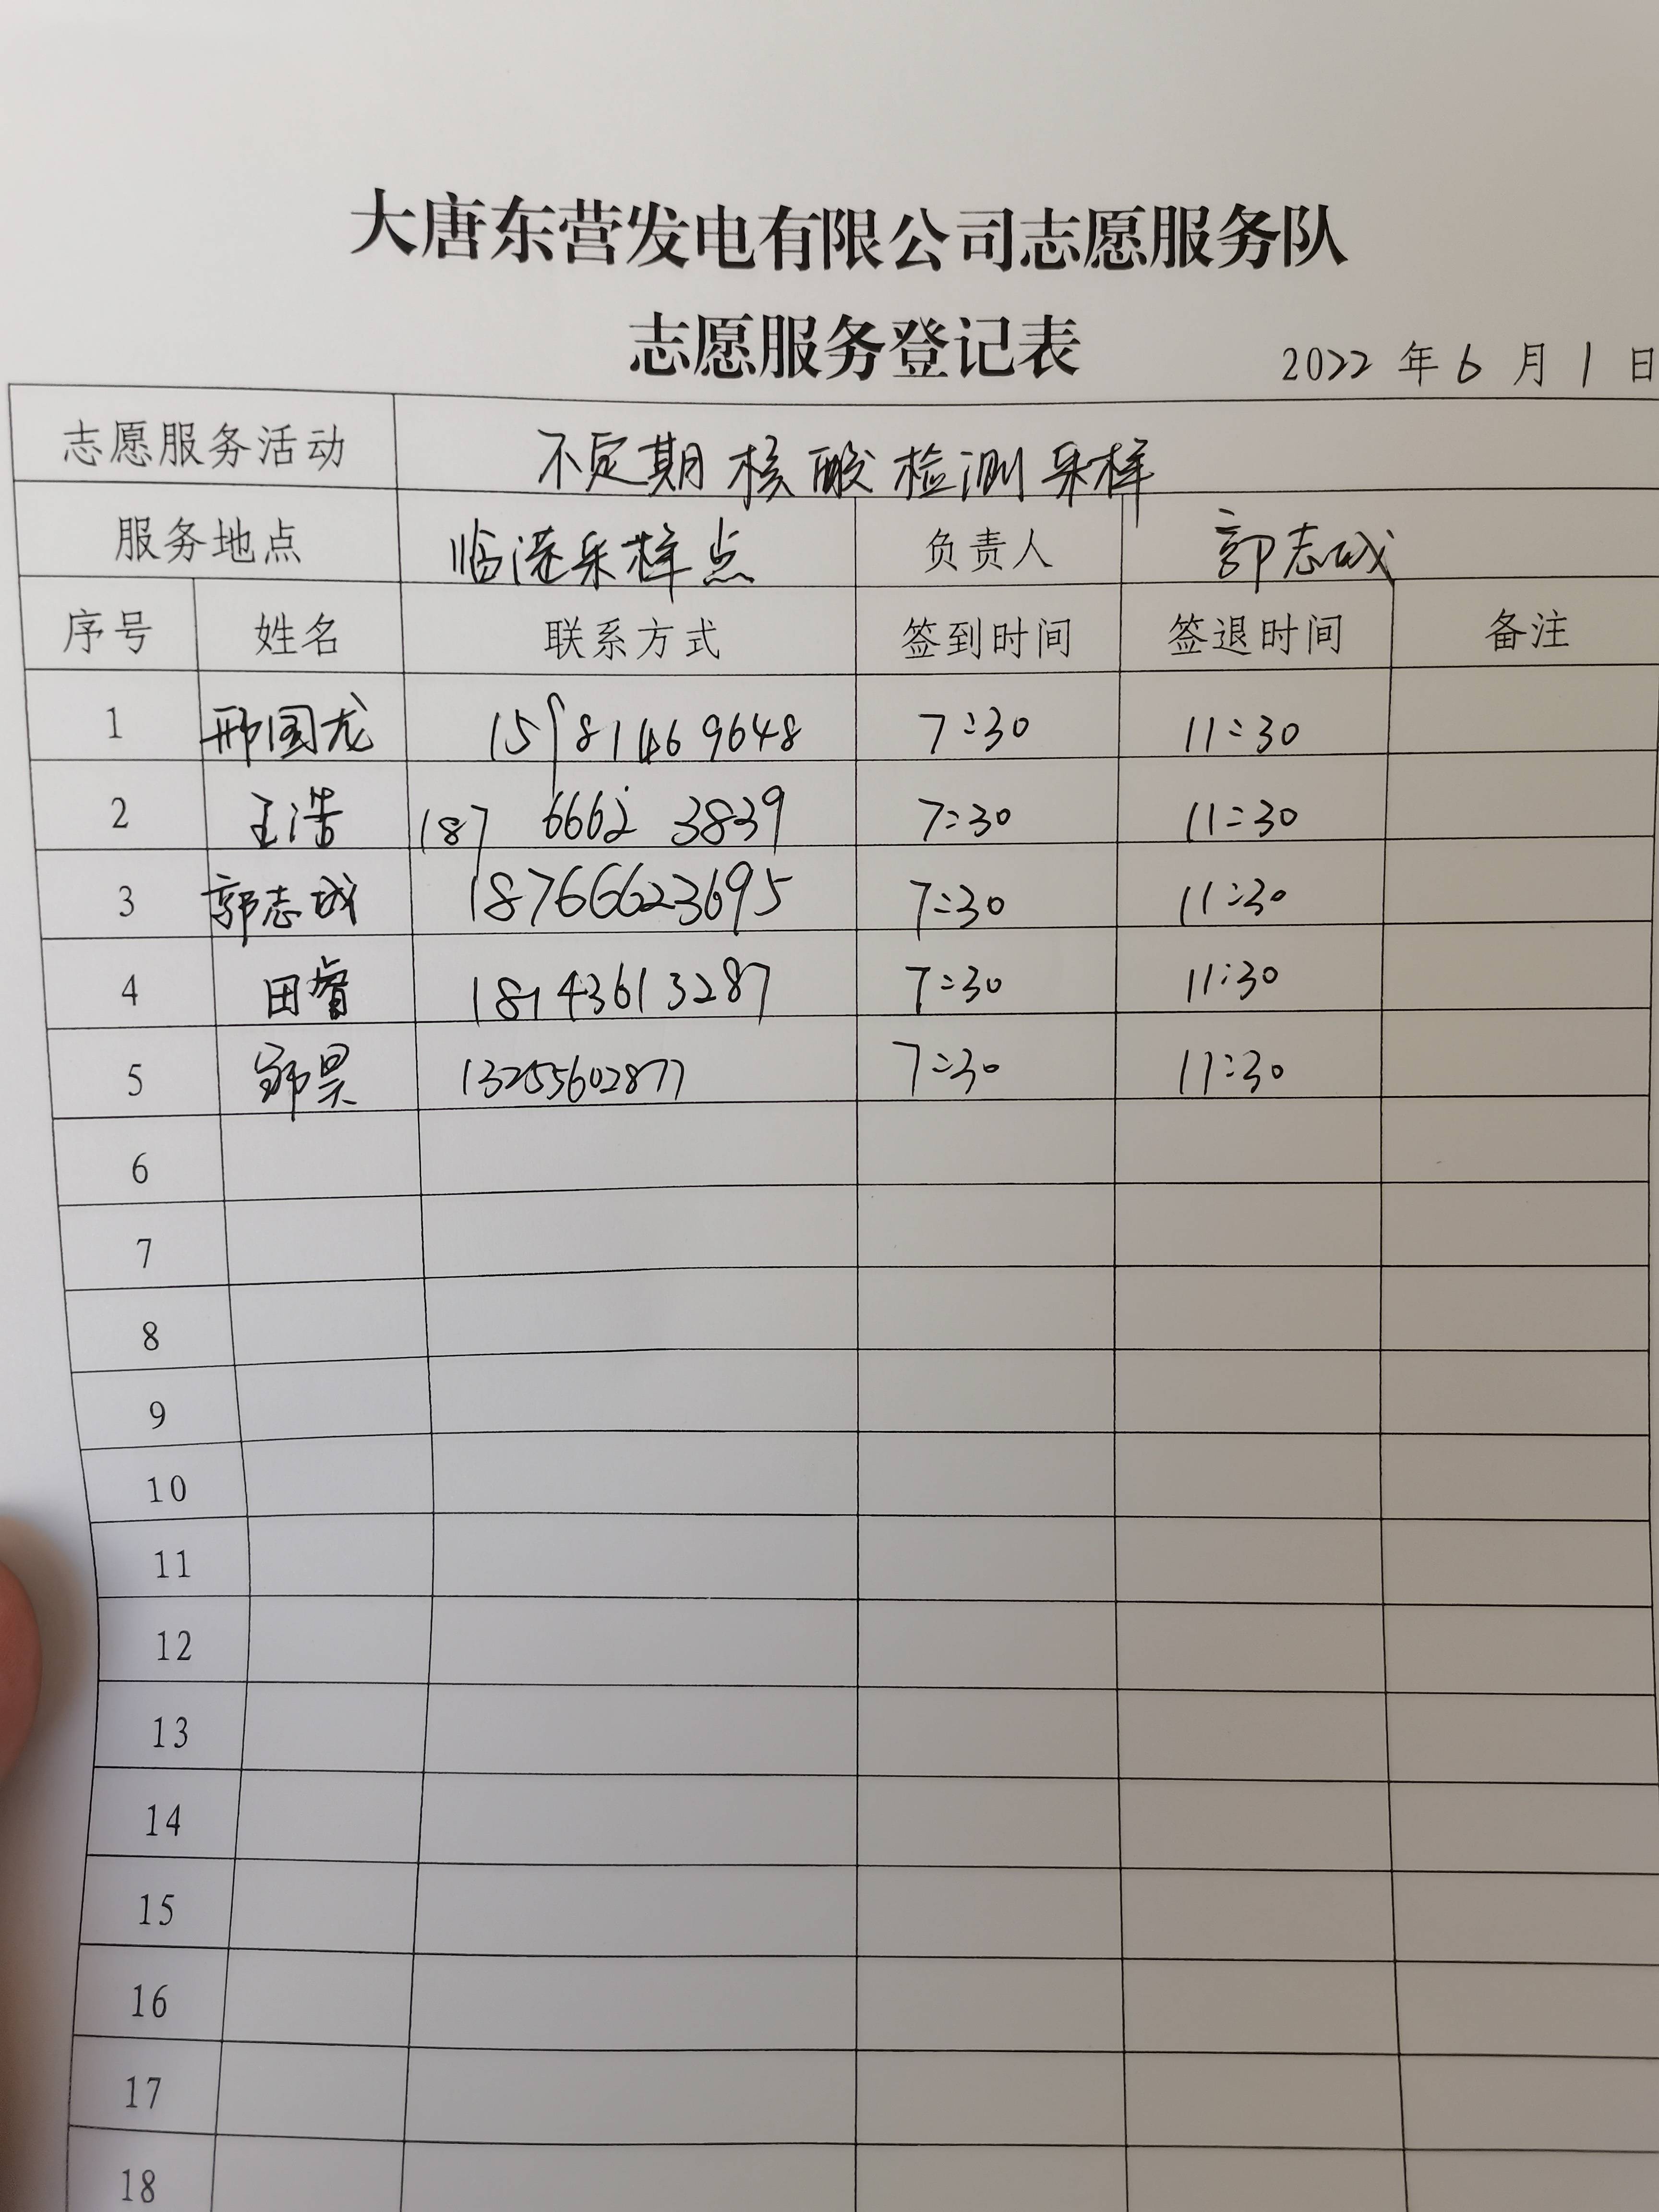 大唐东营发电有限公司志愿服务队
志愿服务登记表
2022 年 6 月 1 日
志愿服务活动 不定期核酸检测采样
服务地点 临港采样点 负责人 郭志成
序号 姓名 联系方式 签到时间 签退时间 备注
1 邢国龙 7:30 11:30
2 王浩 187 6662 3839 7:30 11:30
3 郭志成 18766623695 7:30 11:30
4 田睿 7:30 11:30
5 昊 13255602877 7:30 11:30
6
7
8
9
10
11
12
13
14
15
16
17
18